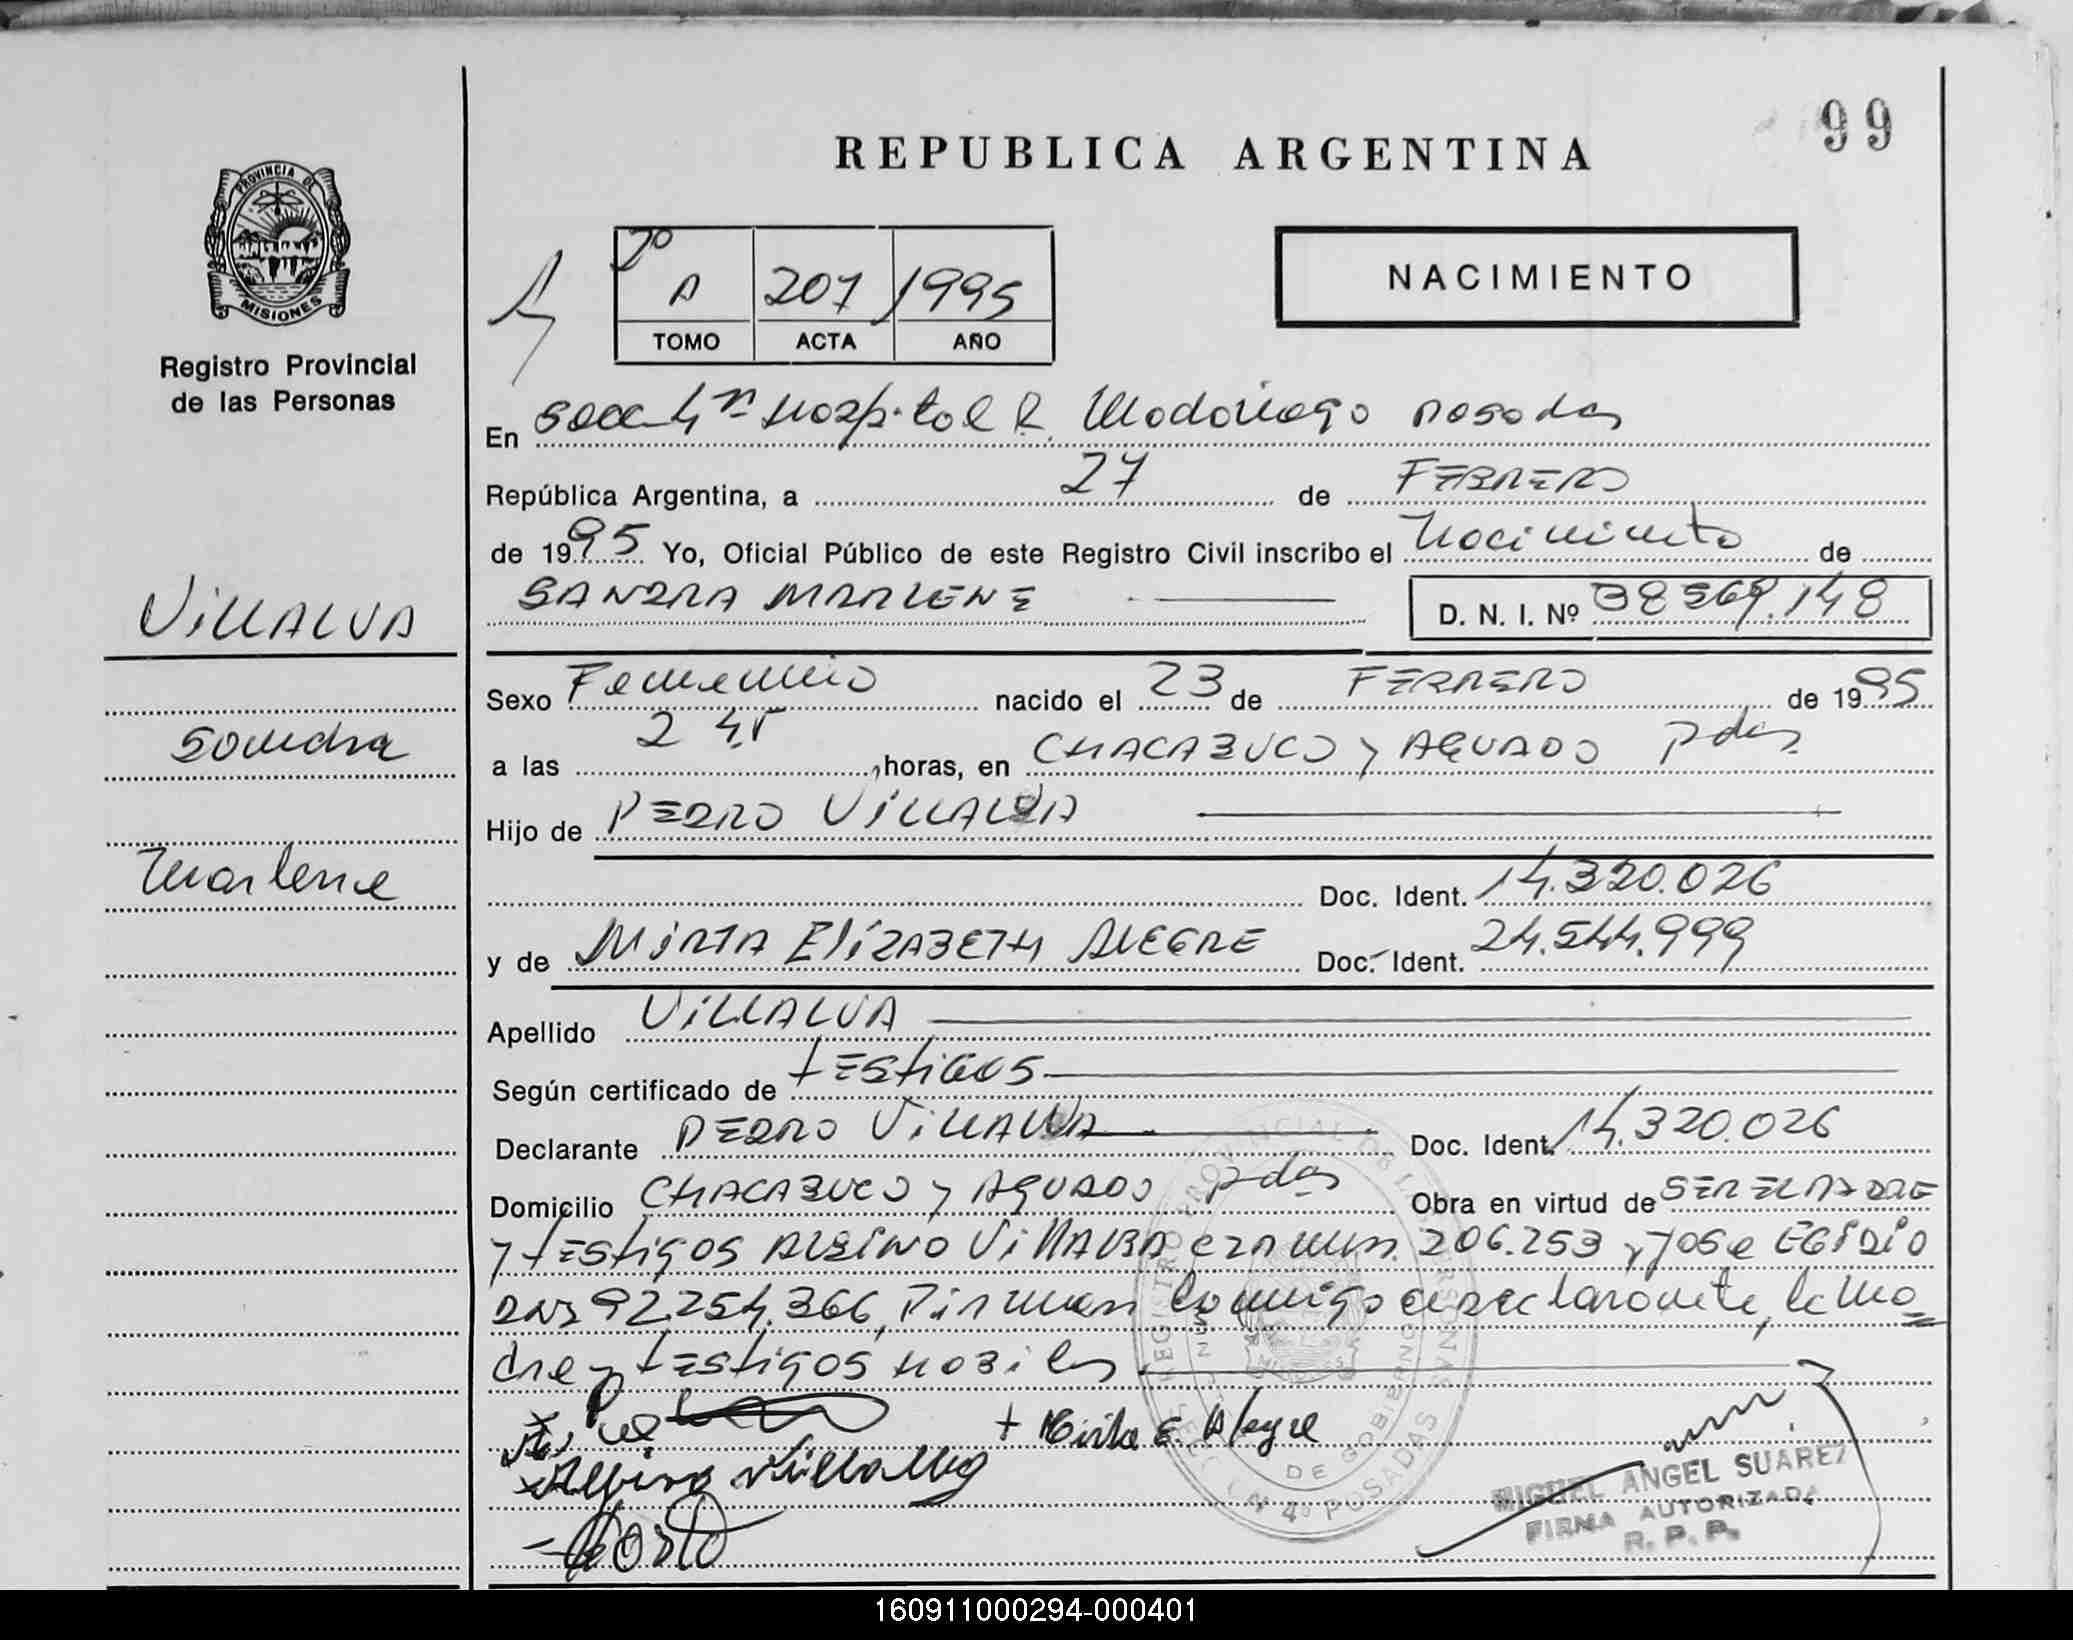 99
REPUBLICA ARGENTINA
PROVINCIA DE
MISIONES
Registro Provincial
de las Personas
2º
A 207 1995
TOMO ACTA AÑO
NACIMIENTO
En Secc 4ª Hospital R. Madariaga Posadas
República Argentina, a 27 de FEBRERO
de 1995 Yo, Oficial Público de este Registro Civil inscribo el Nacimiento de
SANDRA MARLENE D. N. I. Nº 38.569.148
VILLALVA
Sandra
Marlene
Sexo Femenino nacido el 23 de FEBRERO de 1995
a las 2 45 horas, en CHACABUCO y AGUADO Pdas
Hijo de PEDRO VILLALVA
Doc. Ident. 14.320.026
y de MIRTA ELIZABETH ALEGRE Doc. Ident. 24.544.999
Apellido VILLALVA
Según certificado de TESTIGOS
Declarante PEDRO VILLALVA Doc. Ident. 14.320.026
Domicilio CHACABUCO y AGUADO Pdas Obra en virtud de SER EL PADRE
y TESTIGOS ALBINO VILLALBA 206.253 y JOSE EGIDIO
DNI 92.254.366, Firman conmigo el declarante, la ma
dre y testigos hábiles
+ Mirta E. Alegre
Albino Villalba
REGISTRO PROVINCIAL DE LAS PERSONAS
DE GOBIERNO
SECCION 4ª POSADAS
MIGUEL ANGEL SUAREZ
FIRMA AUTORIZADA
R. P. P.
160911000294-000401